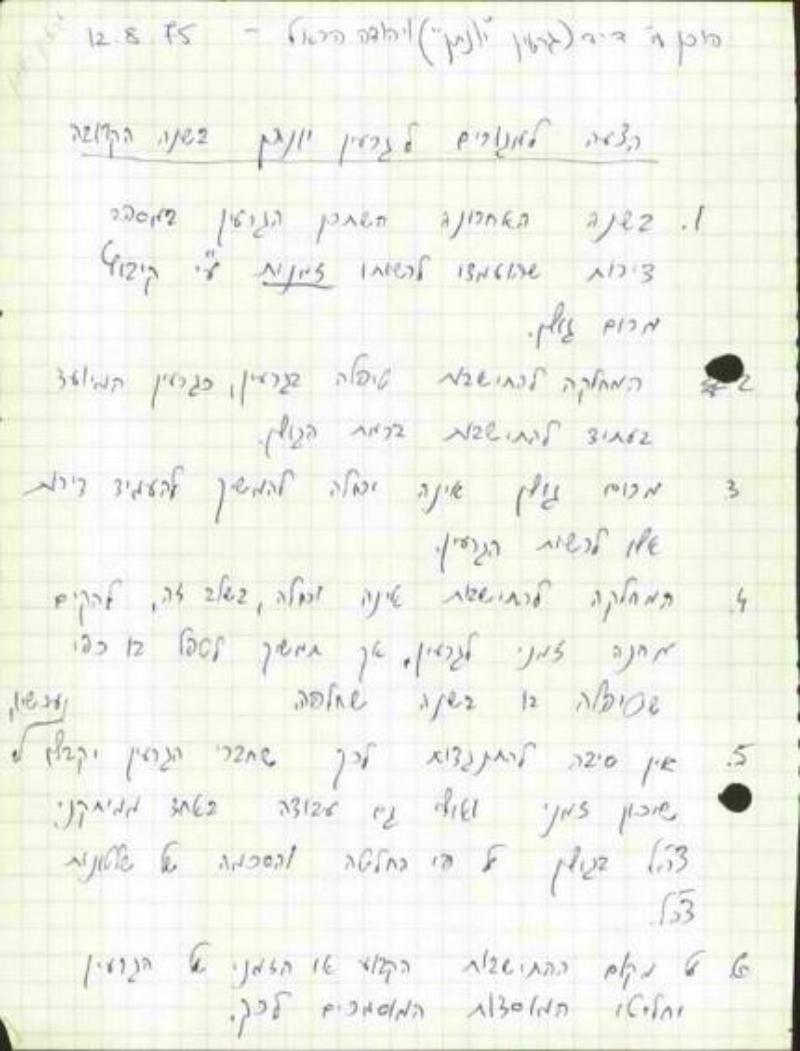 הוכן ע״י דייר (גרעין "יונתן") ויהודה הראל - 12.8.75
הצעה למגורים לגרעין יונתן בשנה הקרובה
1. בשנה האחרונה השתכן הגרעין במספר
דירות שהועמדו לרשותו זמנית ע״י קיבוץ
מרום גולן.
2 המחלקה להתישבות טיפלה בגרעין, כגרעין המיועד
בעתיד להתישבות ברמת הגולן.
3 מרום גולן אינה יכולה להמשיך להעמיד דירות
אלו לרשות הגרעין.
4. המחלקה להתישבות אינה יכולה, בשלב זה, להקים
מחנה זמני לגרעין, אך תמשיך לטפל בו כפי
שטיפלה בו בשנה שחלפה.
5. אין סיבה להתנגדות לכך שחברי הגרעין יקבלו
שיכון זמני ואולי גם עבודה באחד ממיתקני
צה״ל בגולן על פי החלטה והסכמה של שלטונות
צה״ל.
6 על מקום ההתישבות הקבוע או הזמני של הגרעין
יחליטו המוסדות המוסמכים לכך.